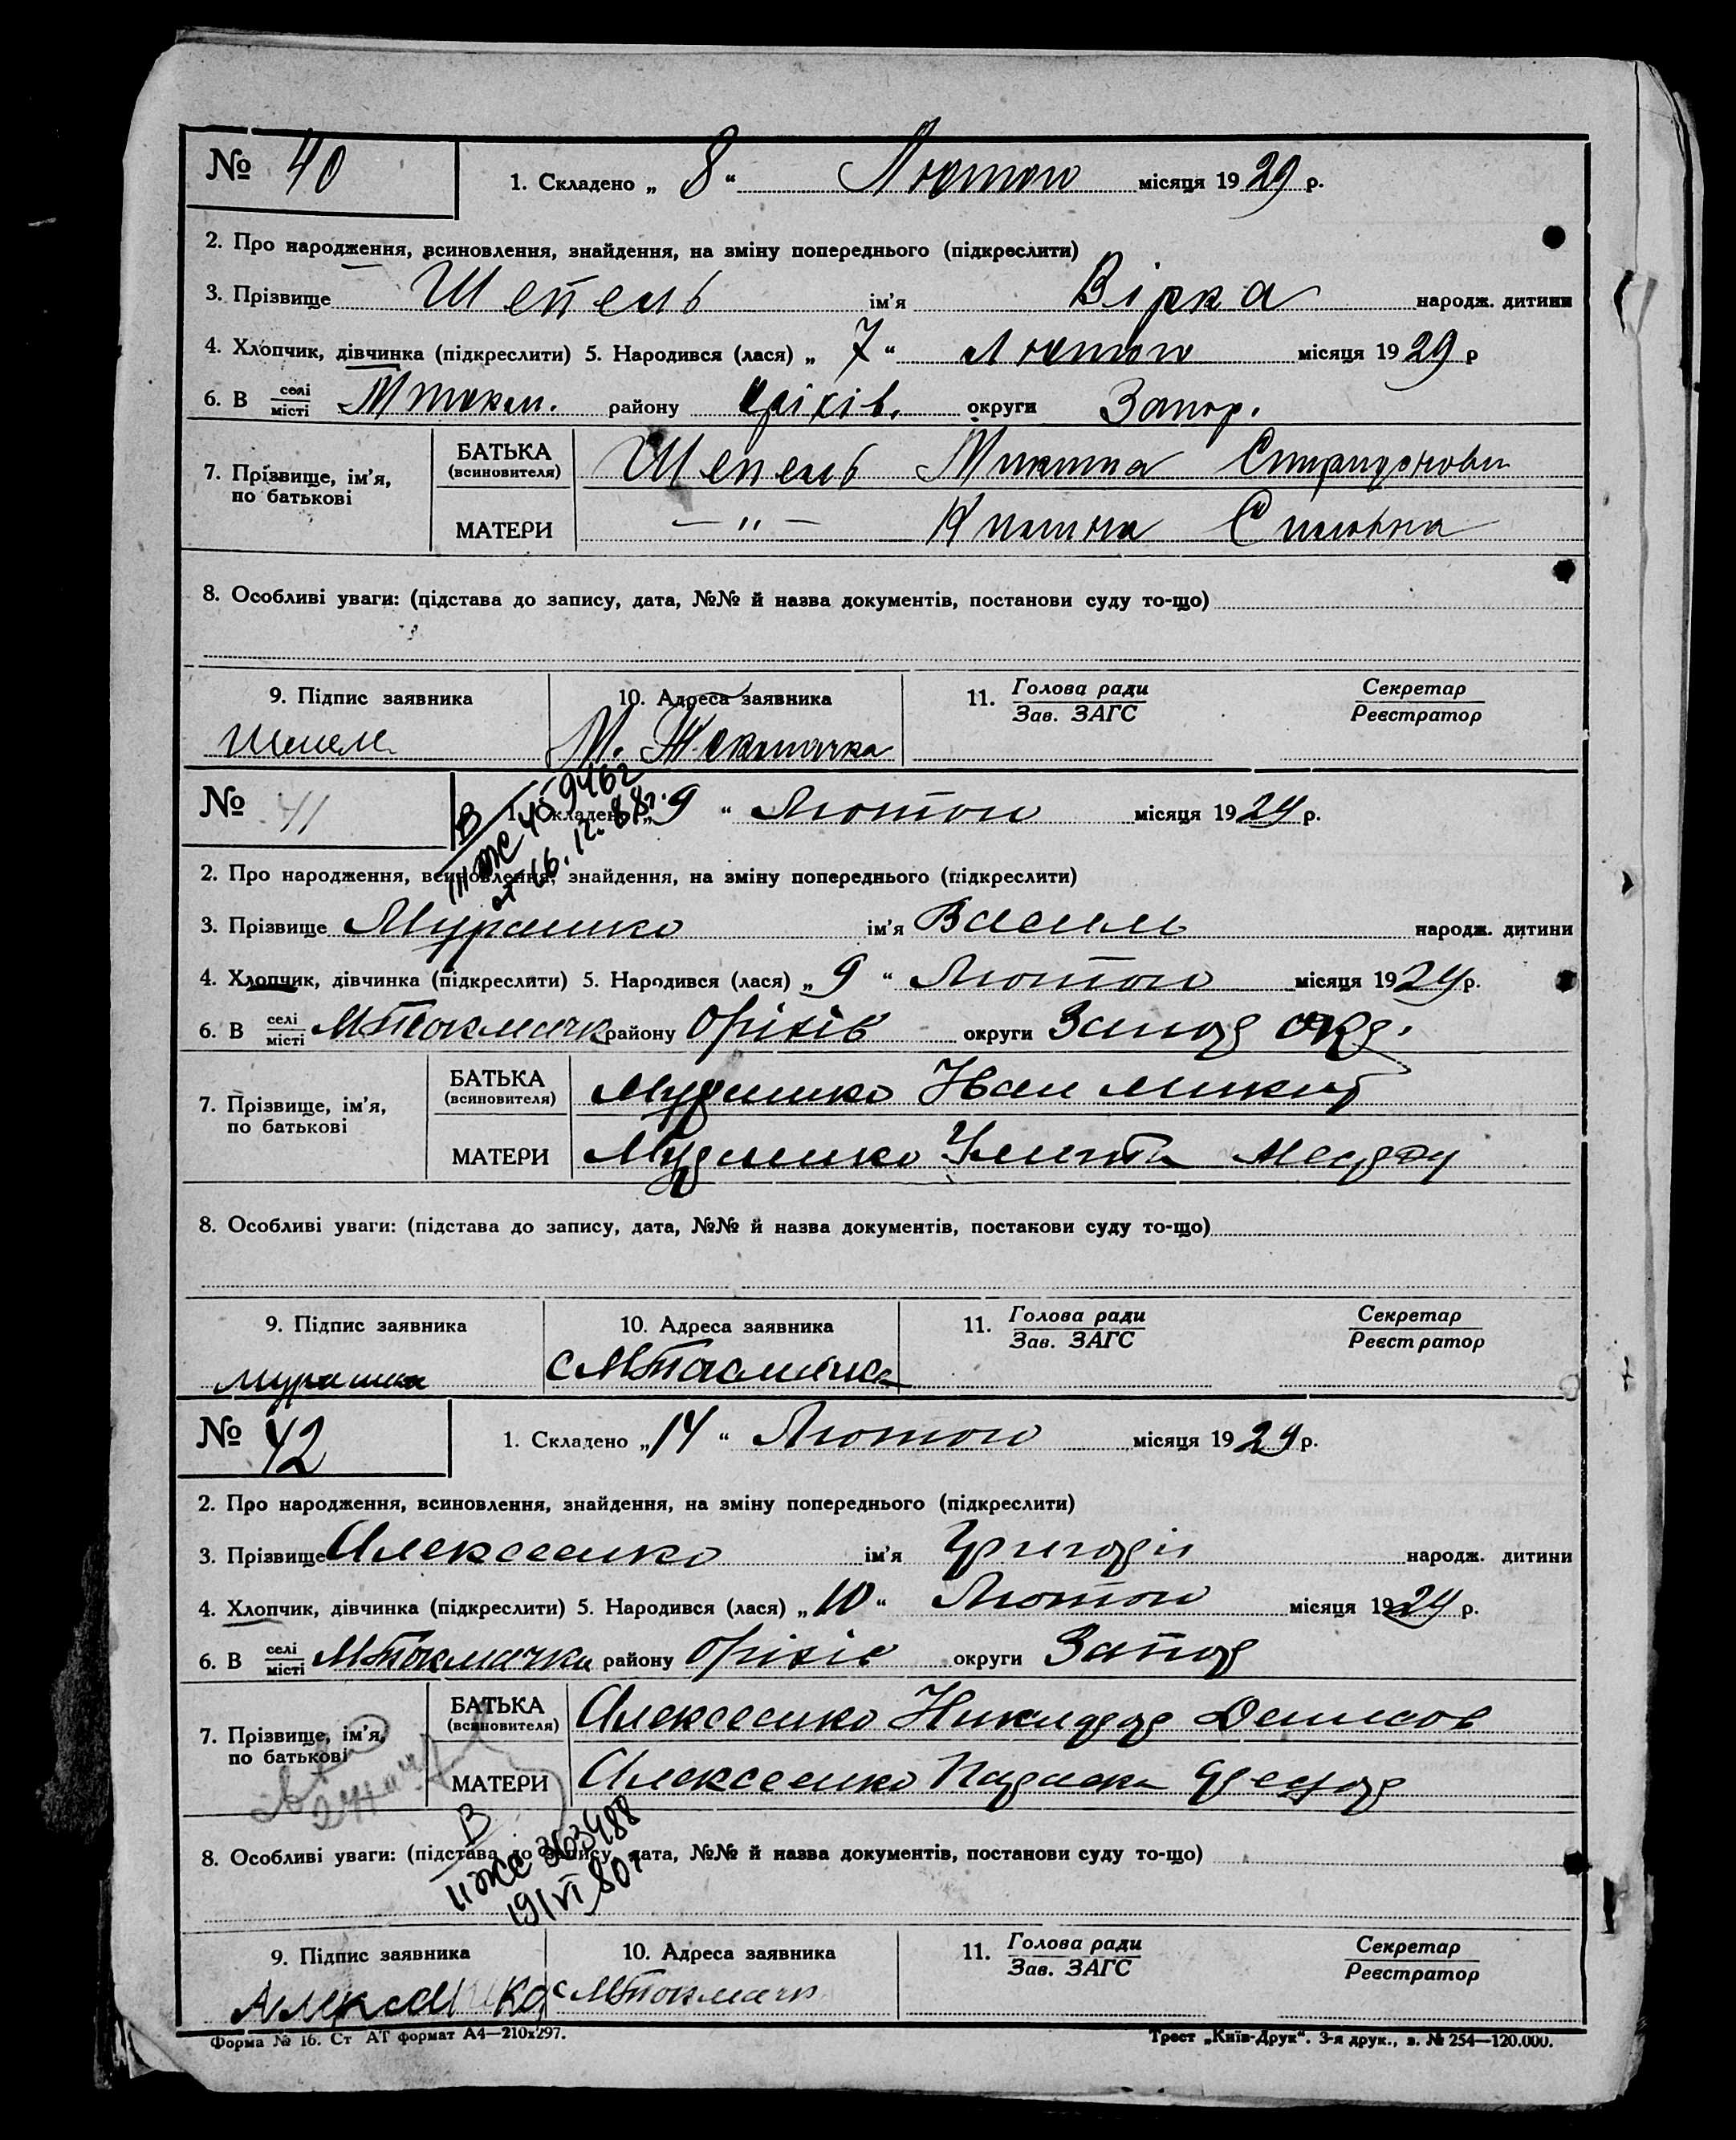 № 40 1. Складено „ 8 “ Лютого місяця 1929 р.
2. Про народження, всиновлення, знайдення, на зміну попереднього (підкреслити)
3. Прізвище Шепель ім’я Вірка народж. дитини
4. Хлопчик, дівчинка (підкреслити) 5. Народився (лася) „ 7 “ Лютого місяця 1929 р
6. В селі/місті Мтокм. району Оріхів. округи Запор.
7. Прізвище, ім’я, по батькові
БАТЬКА (всиновителя) Шепель Микита Спиридонови
МАТЕРИ — „ —
8. Особливі уваги: (підстава до запису, дата, №№ й назва документів, постанови суду то-що)
9. Підпис заявника 10. Адреса заявника 11. Голова ради/Зав. ЗАГС Секретар/Реєстратор
Шепель М. Токмачка
№ 41 1. Складено „ 9 “ Лютого місяця 1929 р.
В
III ЖС 459462
от 16.12.88г.
2. Про народження, всиновлення, знайдення, на зміну попереднього (підкреслити)
3. Прізвище Мурашко ім’я Василь народж. дитини
4. Хлопчик, дівчинка (підкреслити) 5. Народився (лася) „ 9 “ Лютого місяця 1929 р.
6. В селі/місті МТокмачк району Оріхів округи Запор окр.
7. Прізвище, ім’я, по батькові
БАТЬКА (всиновителя) Мурашко Иван Микит
МАТЕРИ Мурашко
8. Особливі уваги: (підстава до запису, дата, №№ й назва документів, постанови суду то-що)
9. Підпис заявника 10. Адреса заявника 11. Голова ради/Зав. ЗАГС Секретар/Реєстратор
Мурашко с МТокмачка
№ 42 1. Складено „ 14 “ Лютого місяця 1929 р.
2. Про народження, всиновлення, знайдення, на зміну попереднього (підкреслити)
3. Прізвище Алексеенко ім’я Григорій народж. дитини
4. Хлопчик, дівчинка (підкреслити) 5. Народився (лася) „ 10 “ Лютого місяця 1929 р.
6. В селі/місті МТокмачка району Оріхів округи Запор
7. Прізвище, ім’я, по батькові
БАТЬКА (всиновителя) Алексеенко Никифор Денисов
МАТЕРИ Алексеенко Параска Федор
В
II ЖС 363488
19/VI 80г
8. Особливі уваги: (підстава до запису, дата, №№ й назва документів, постанови суду то-що)
9. Підпис заявника 10. Адреса заявника 11. Голова ради/Зав. ЗАГС Секретар/Реєстратор
Алексеенко с МТокмачк
Форма № 16. Ст АТ формат А4—210х297. Трест „Київ-Друк“. 3-я друк., з. № 254—120.000.